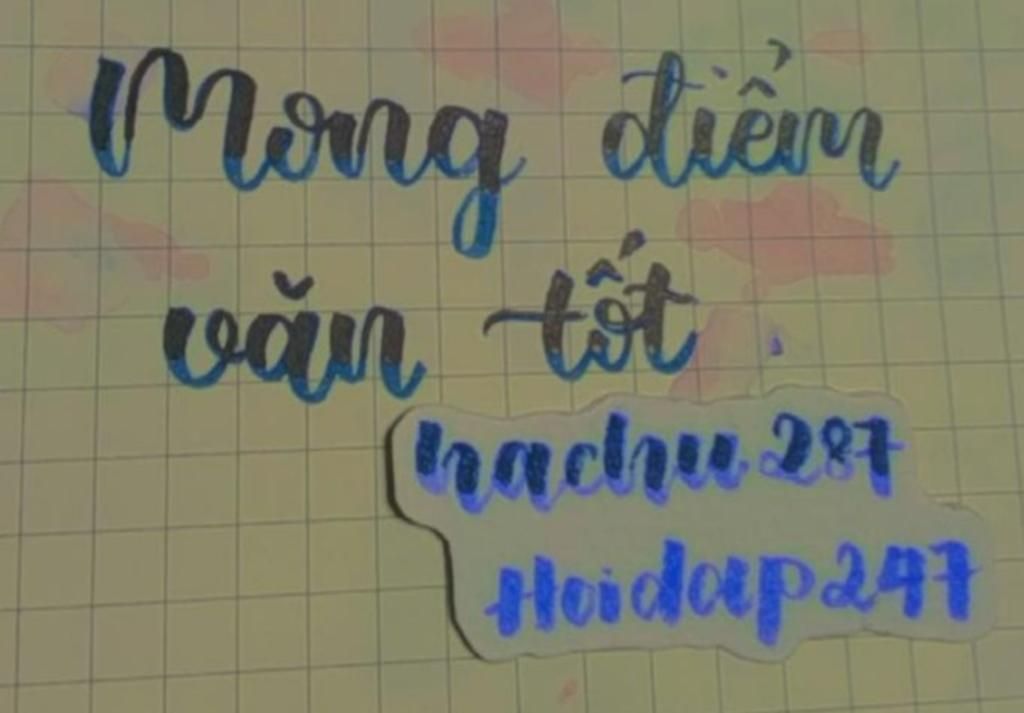 Mong điểm
văn tốt
hachu287
Hoidap247